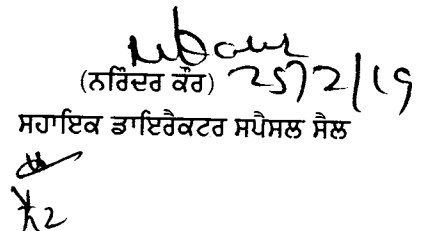 (ਨਰਿੰਦਰ ਕੌਰ) 25/2/19
ਸਹਾਇਕ ਡਾਇਰੈਕਟਰ ਸਪੈਸਲ ਸੈਲ